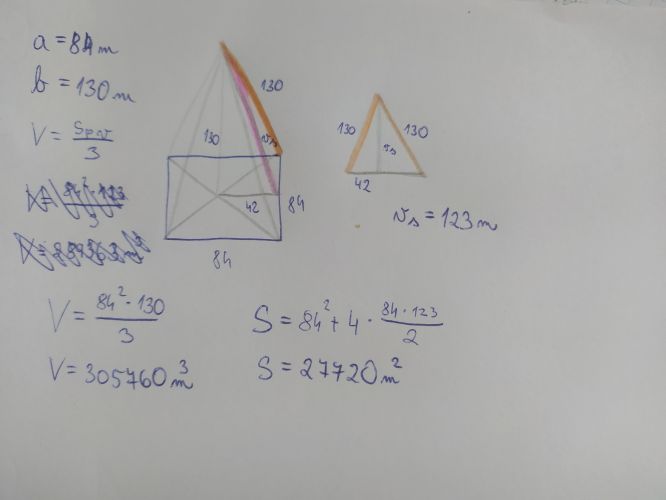 a = 84 m
b = 130 m
V = Sp·v / 3
130
130
vs
42
84
84
130
130
vs
42
vs = 123 m
V = 84² · 130 / 3
V = 305760 m³
S = 84² + 4 · 84 · 123 / 2
S = 27720 m²